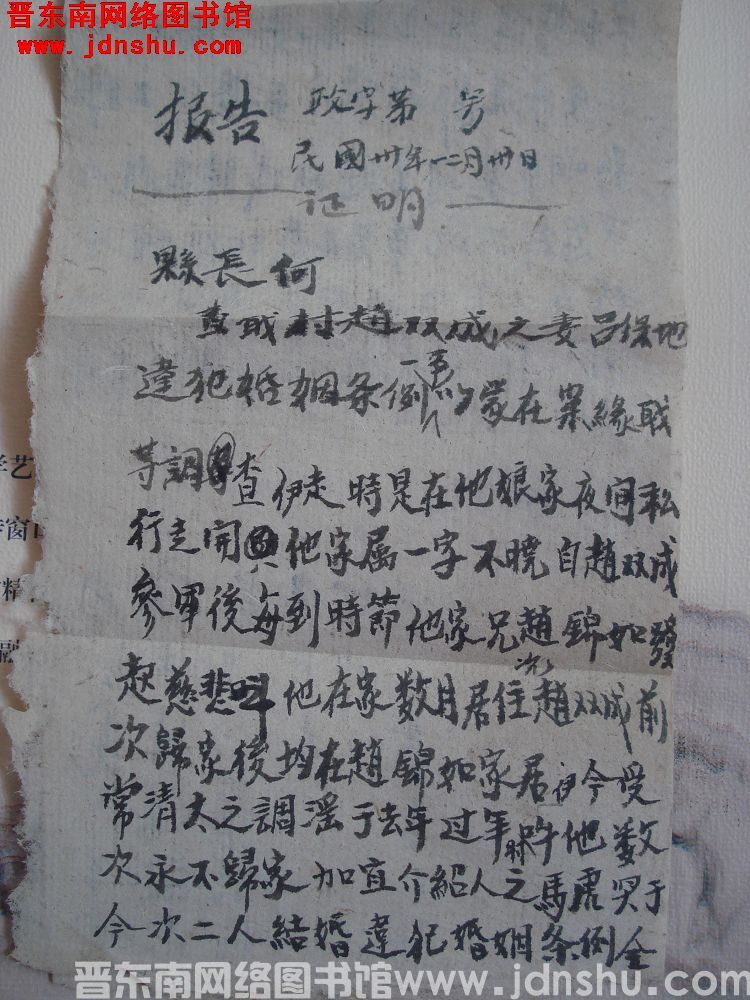 晋东南网络图书馆
www.jdnshu.com
报告 政字第 号
民國卅年一二月卅日
证明
縣長何
查职村趙双成之妻吕保地
違犯婚姻条例一事 蒙在案緣职
等調查伊走時是在他娘家夜间私
行走開 他家属一字不曉自趙双成
參軍後每到時節他家兄趙錦如發
起慈悲叫他在家数月居住趙双成前
次歸家後均在趙錦如家居伊今受
常清太之調淫于去年过年 叫他数
次永不歸家加宜介紹人之馬虎 于
今次二人結婚違犯婚姻条例全
学艺
窗口
精
融
晋东南网络图书馆 www.jdnshu.com